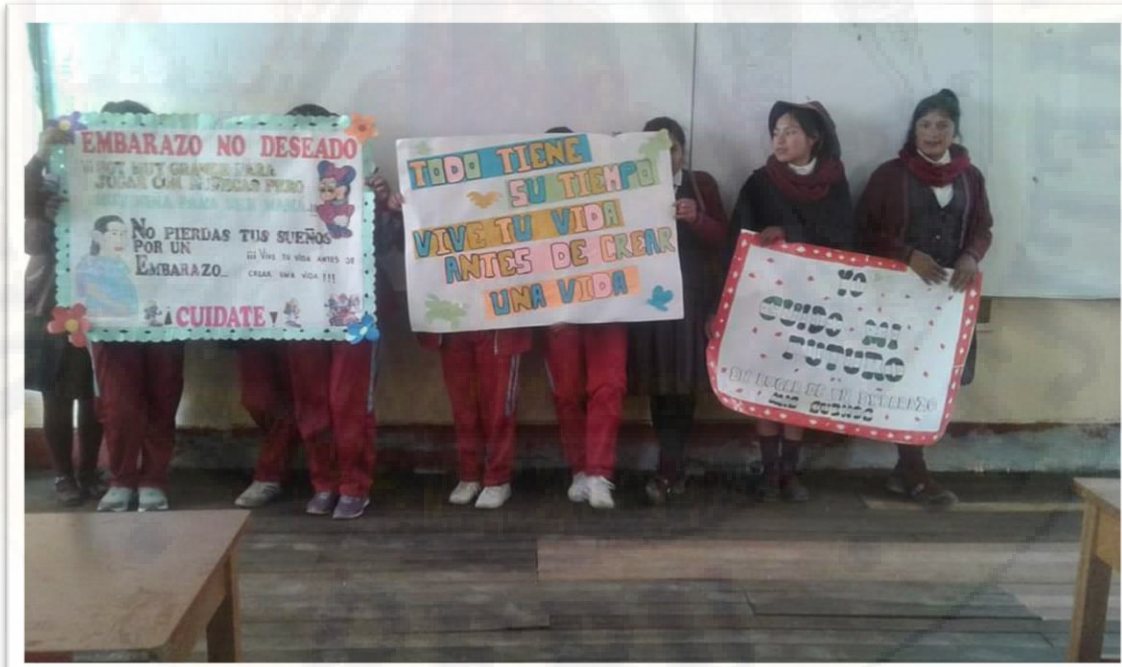 EMBARAZO NO DESEADO
MUY GRANDE PARA
JUGAR CON MUÑECAS PERO
NO PIERDAS TUS SUEÑOS
POR UN
EMBARAZO...
¡¡¡ VIVE TU VIDA ANTES DE
CREAR UNA VIDA !!!
CUIDATE
TODO TIENE
SU TIEMPO
VIVE TU VIDA
ANTES DE CREAR
UNA VIDA
YO
CUIDO MI
FUTURO
EN LUGAR DE UN EMBARAZO